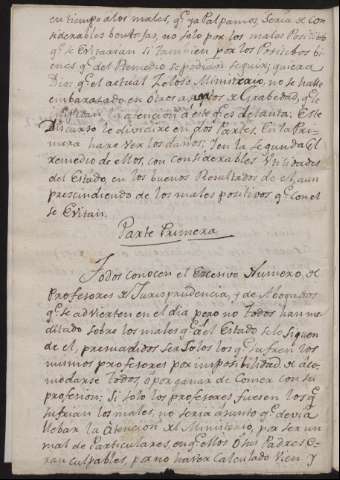 en tiempo alos males, q.e ya Palpamos, Seria de con
siderables bentajas, no solo por los males Positivos
q.e se evitarian si tambien por los Positibos bi
enes q.e del Remedio se podian seguir, quiera
Dios q.e el actual Zeloso Ministerio, no se halle
embarazado en otros de Grabedad, q.e le
la atencion a este q.e es de tanta. Este
Discurso le dividire en dos Partes, En la Pri
mera hare ver los daños; Y en la segunda el
remedio de ellos, con considerables Utilidades
del Estado, en los buenos Resultados de el, aun
prescindiendo de los males positivos q.e con el
se Evitan.
Parte Primera
Todos conocen el Excesivo Numero, de
Profesores de Jurisprudencia, y de Abogados
q.e se advierten en el dia pero no todos han me
ditado sobre los males q.e del Estado se le siguen
de el, persuadidos ser Solos los q.e sufren los
mismos profesores por imposibilidad de aco
modarse todos, o por ganar de Comer con su
profesion; Si solo los profesores fuesen los q.e
sufrian los males, no seria asunto q.e devia
llebar la atencion de el Ministerio, por ser un
mal de Particulares, en q.e ellos o sus Padres e
ran culpables, por no haver Calculado bien y